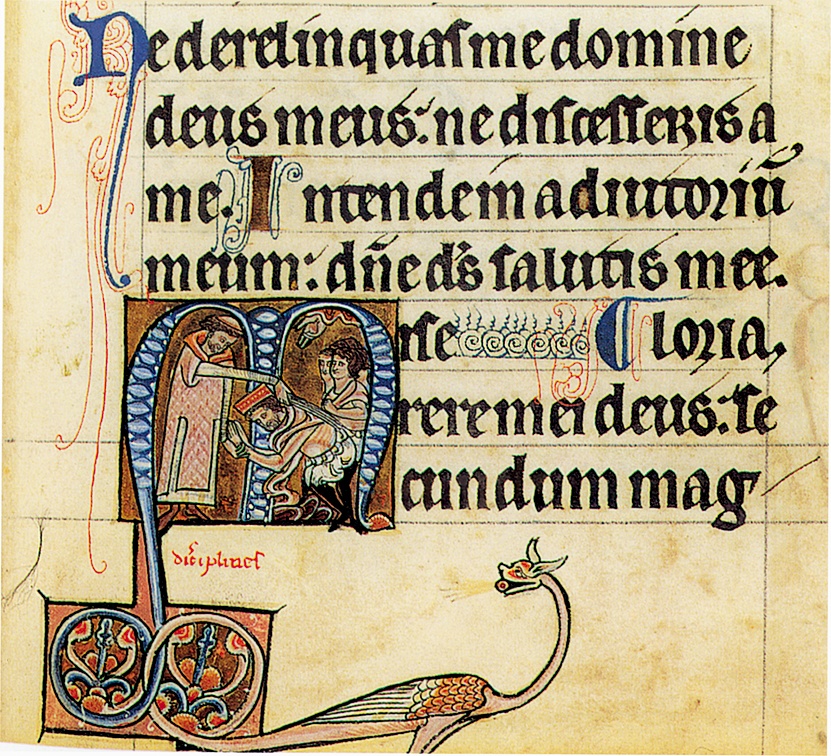 Ne derelinquas me domine
deus meus: ne discesseris a
me. Intende in adiutoriū
meum: dn̄e ds̄ salutis mee.
Mise Gloria.
rere mei deus: se
cundum mag